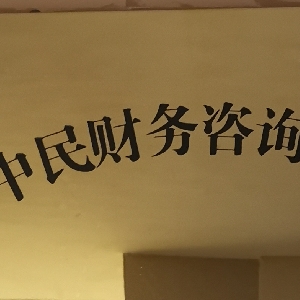 中民财务咨询